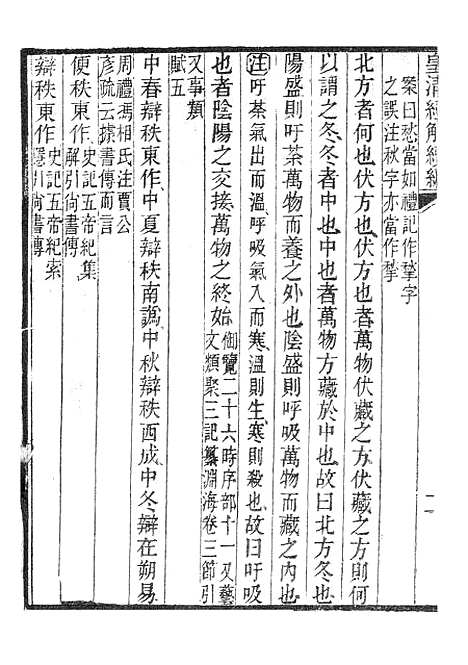 皇清經解續編
案曰愁當如禮記作揫字
之誤注秋字亦當作揫
北方者何也伏方也伏方也者萬物伏藏之方伏藏之方則何
以謂之冬冬者中也中也者萬物方藏於中也故曰北方冬也
陽盛則吁荼萬物而養之外也陰盛則呼吸萬物而藏之內也
注呼荼氣出而溫呼吸氣入而寒溫則生寒則殺也故曰吁吸
也者陰陽之交接萬物之終始御覽二十六時序部十一又藝
文類聚三記纂淵海卷三節引
又事類
賦五
中春辯秩東作中夏辯秩南譌中秋辯秩西成中冬辯在朔易
周禮馮相氏注賈公
彥疏云據書傳而言
便秩東作史記五帝紀集
解引尚書傳
辯秩東作史記五帝紀索
隱引尚書傳